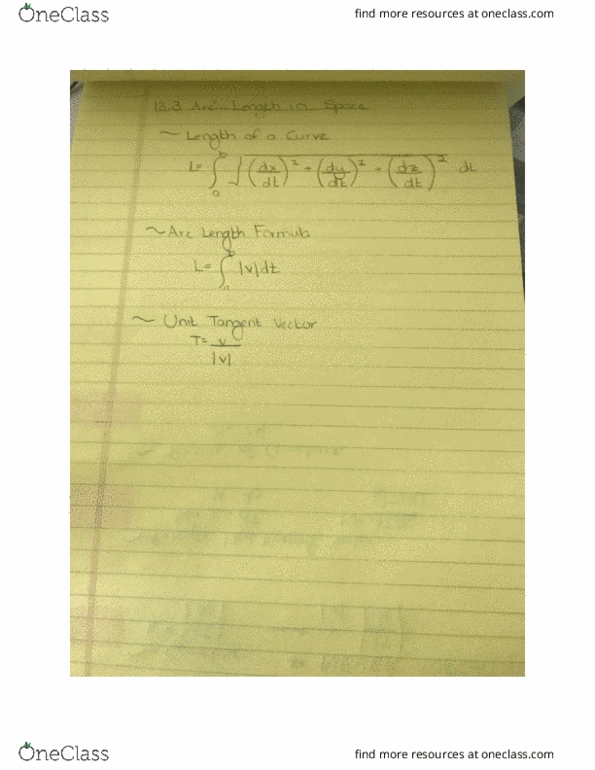 OneClass find more resources at oneclass.com
13.3 Arc Length in Space
~ Length of a Curve
L= ∫_a^b √((dx/dt)² + (dy/dt)² + (dz/dt)²) dt
~ Arc Length Formula
L= ∫_a^b |v|dt
~ Unit Tangent Vector
T= v/|v|
OneClass find more resources at oneclass.com